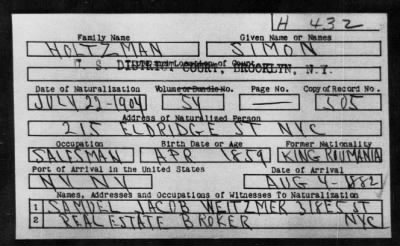 H 432
Family Name Given Name or Names
HOLTZMAN SIMON
U. S. DISTRICT COURT, BROOKLYN, N.Y.
Date of Naturalization Volume or Bundle No. Page No. Copy of Record No.
JULY 22-1904 54 — 505
Address of Naturalized Person
215 ELDRIDGE ST NYC
Occupation Birth Date or Age Former Nationality
SALESMAN APR 1859 KING ROUMANIA
Port of Arrival in the United States Date of Arrival
NY NY AUG 4-1882
Names, Addresses and Occupations of Witnesses To Naturalization
1 SAMUEL JACOB WEITZMER 318 EC ST
2 REAL ESTATE BROKER NYC